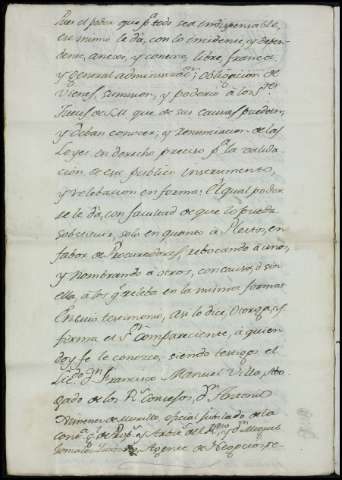 Pues el poder que pª todo sea indispensable,
ese mismo le dá, con lo incidente, y depen-
dente, anexo, y conexo, libre, franca,
y general administraz.ⁿ; obligacion de
vienes, sumision, y poderio à los S.res
Jueces de S.M. que de sus causas puedan,
y deban conocer, y renunciacion de las
Leyes en derecho preciso pª la valida-
cion de este publico instrumento,
y relebacion en forma; el qual poder
se le dá, con facultad de que lo pueda
sobstituir, solo en quanto à Pleitos, en
fabor de Procuradores, rebocando à unos,
y nombrando à otros, con causa, ò sin
ella, à los q.e releba en la misma forma:
En cuio testimonio, asi lo dice, otorga, y
firma el S.or compareciente, à quien
doy fe le conozco, siendo testigos el
Lic.do D.n Francisco Manuel Villa, Abo-
gado de los R.s Consejos, D.n Antonio
Ximenez de Murillo, oficial jubilado de la
y D.n Miguel
Gonzalez Agente de Negocios, re-